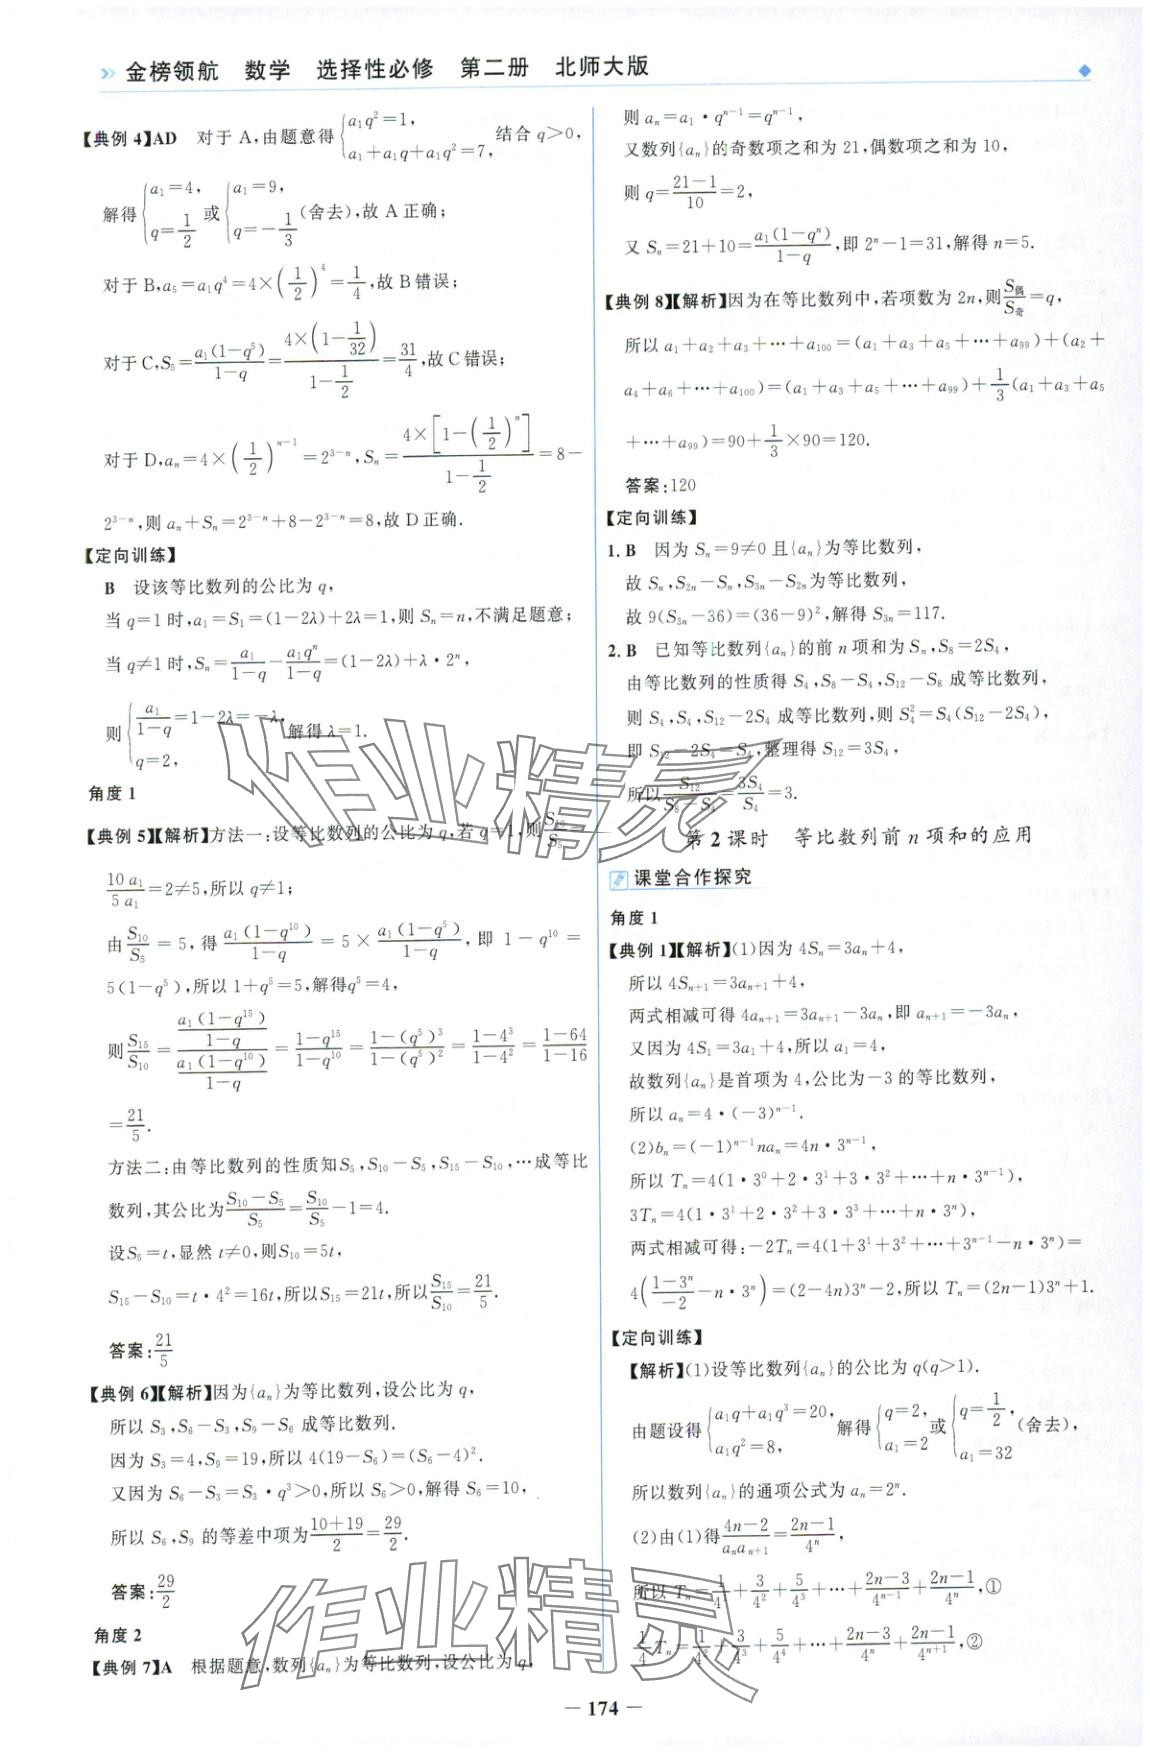 » 金榜领航 数学 选择性必修 第二册 北师大版
【典例 4】AD 对于 A,由题意得{a₁q²=1, a₁+a₁q+a₁q²=7, 结合 q>0,
解得{a₁=4, q=1/2 或{a₁=9, q=-1/3 (舍去),故 A 正确;
对于 B,a₅=a₁q⁴=4×(1/2)⁴=1/4,故 B 错误;
对于 C,S₅=a₁(1-q⁵)/(1-q)=4×(1-1/32)/(1-1/2)=31/4,故 C 错误;
对于 D,aₙ=4×(1/2)ⁿ⁻¹=2³⁻ⁿ,Sₙ=4×[1-(1/2)ⁿ]/(1-1/2)=8-
2³⁻ⁿ,则 aₙ+Sₙ=2³⁻ⁿ+8-2³⁻ⁿ=8,故 D 正确.
【定向训练】
B 设该等比数列的公比为 q,
当 q=1 时,a₁=S₁=(1-2λ)+2λ=1,则 Sₙ=n,不满足题意;
当 q≠1 时,Sₙ=a₁/(1-q)-a₁qⁿ/(1-q)=(1-2λ)+λ·2ⁿ,
则{a₁/(1-q)=1-2λ=-λ, q=2, 解得 λ=1.
角度 1
【典例 5】【解析】方法一:设等比数列的公比为 q,若 q=1,则S₁₀/S₅=
10a₁/5a₁=2≠5,所以 q≠1;
由S₁₀/S₅=5,得a₁(1-q¹⁰)/(1-q)=5×a₁(1-q⁵)/(1-q),即 1-q¹⁰=
5(1-q⁵),所以 1+q⁵=5,解得q⁵=4,
则S₁₅/S₁₀=[a₁(1-q¹⁵)/(1-q)]/[a₁(1-q¹⁰)/(1-q)]=(1-q¹⁵)/(1-q¹⁰)=(1-(q⁵)³)/(1-(q⁵)²)=(1-4³)/(1-4²)=(1-64)/(1-16)
=21/5.
方法二:由等比数列的性质知S₅,S₁₀-S₅,S₁₅-S₁₀,…成等比
数列,其公比为(S₁₀-S₅)/S₅=S₁₀/S₅-1=4.
设S₅=t,显然 t≠0,则S₁₀=5t,
S₁₅-S₁₀=t·4²=16t,所以S₁₅=21t,所以S₁₅/S₁₀=21/5.
答案:21/5
【典例 6】【解析】因为{aₙ}为等比数列,设公比为 q,
所以 S₃,S₆-S₃,S₉-S₆ 成等比数列.
因为 S₃=4,S₉=19,所以 4(19-S₆)=(S₆-4)².
又因为 S₆-S₃=S₃·q³>0,所以 S₆>0,解得 S₆=10,
所以 S₆,S₉ 的等差中项为(10+19)/2=29/2.
答案:29/2
角度 2
【典例 7】A 根据题意,数列{aₙ}为等比数列,设公比为 q,
则 aₙ=a₁·qⁿ⁻¹=qⁿ⁻¹,
又数列{aₙ}的奇数项之和为 21,偶数项之和为 10,
则 q=(21-1)/10=2,
又 Sₙ=21+10=a₁(1-qⁿ)/(1-q),即 2ⁿ-1=31,解得 n=5.
【典例 8】【解析】因为在等比数列中,若项数为 2n,则S偶/S奇=q,
所以 a₁+a₂+a₃+…+a₁₀₀=(a₁+a₃+a₅+…+a₉₉)+(a₂+
a₄+a₆+…+a₁₀₀)=(a₁+a₃+a₅+…+a₉₉)+1/3(a₁+a₃+a₅
+…+a₉₉)=90+1/3×90=120.
答案:120
【定向训练】
1. B 因为 Sₙ=9≠0 且{aₙ}为等比数列,
故 Sₙ,S₂ₙ-Sₙ,S₃ₙ-S₂ₙ为等比数列,
故 9(S₃ₙ-36)=(36-9)²,解得 S₃ₙ=117.
2. B 已知等比数列{aₙ}的前 n 项和为 Sₙ,S₈=2S₄,
由等比数列的性质得 S₄,S₈-S₄,S₁₂-S₈ 成等比数列,
则 S₄,S₄,S₁₂-2S₄ 成等比数列,则 S₄²=S₄(S₁₂-2S₄),
即 S₁₂-2S₄=S₄,整理得 S₁₂=3S₄,
所以S₁₂/(S₈-S₄)=3S₄/S₄=3.
第 2 课时 等比数列前 n 项和的应用
课堂合作探究
角度 1
【典例 1】【解析】(1)因为 4Sₙ=3aₙ+4,
所以 4Sₙ₊₁=3aₙ₊₁+4,
两式相减可得 4aₙ₊₁=3aₙ₊₁-3aₙ,即 aₙ₊₁=-3aₙ,
又因为 4S₁=3a₁+4,所以 a₁=4,
故数列{aₙ}是首项为 4,公比为-3 的等比数列,
所以 aₙ=4·(-3)ⁿ⁻¹.
(2)bₙ=(-1)ⁿ⁻¹naₙ=4n·3ⁿ⁻¹,
所以 Tₙ=4(1·3⁰+2·3¹+3·3²+…+n·3ⁿ⁻¹),
3Tₙ=4(1·3¹+2·3²+3·3³+…+n·3ⁿ),
两式相减可得:-2Tₙ=4(1+3¹+3²+…+3ⁿ⁻¹-n·3ⁿ)=
4((1-3ⁿ)/(-2)-n·3ⁿ)=(2-4n)3ⁿ-2,所以 Tₙ=(2n-1)3ⁿ+1.
【定向训练】
【解析】(1)设等比数列{aₙ}的公比为 q(q>1).
由题设得{a₁q+a₁q³=20, a₁q²=8, 解得{q=2, a₁=2 或{q=1/2, a₁=32 (舍去),
所以数列{aₙ}的通项公式为 aₙ=2ⁿ.
(2)由(1)得(4n-2)/(aₙaₙ₊₁)=(2n-1)/4ⁿ,
所以 Tₙ=1/4+3/4²+5/4³+…+(2n-3)/4ⁿ⁻¹+(2n-1)/4ⁿ,①
1/4 Tₙ=1/4²+3/4³+5/4⁴+…+(2n-3)/4ⁿ+(2n-1)/4ⁿ⁺¹,②
— 174 —
作业精灵
作业精灵